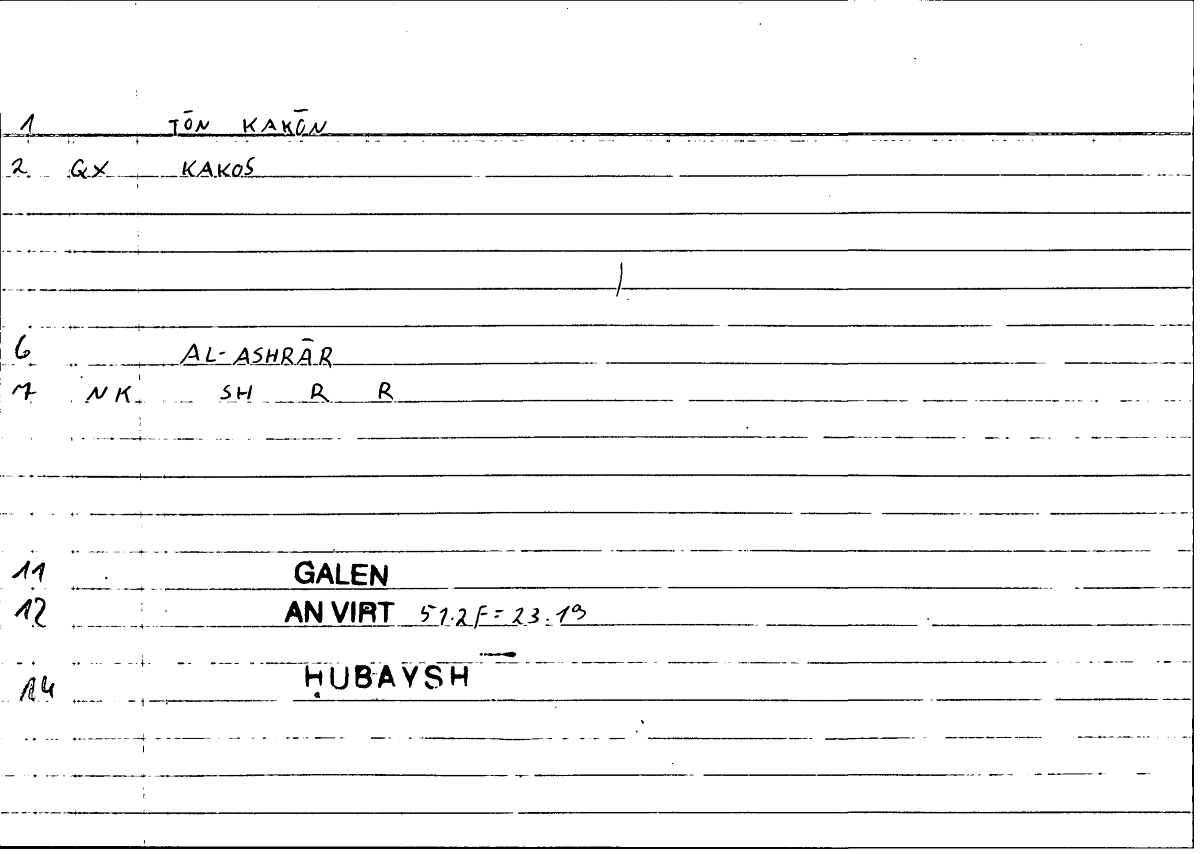 1 TŌN KAKŌN
2 QX KAKOS
6 AL-ASHRĀR
7 NK SH R R
11 GALEN
12 AN VIRT 51.2f = 23.19
14 ḤUBAYSH